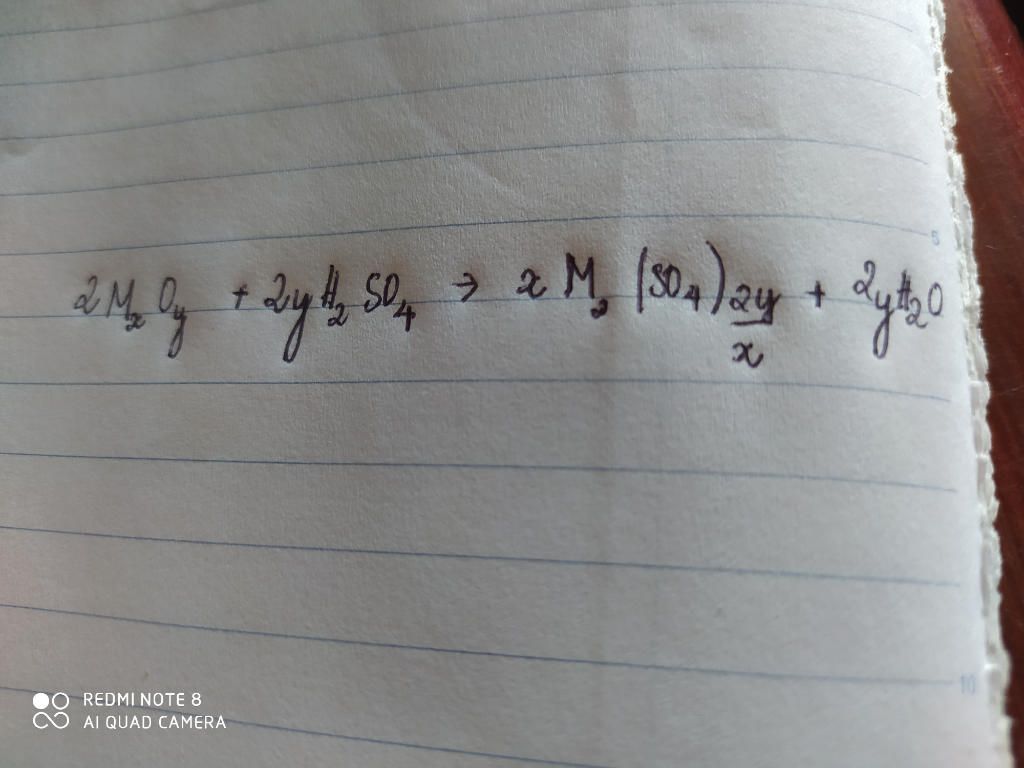 2MₓO_y + 2yH₂SO₄ → xM₂(SO₄)_{2y/x} + 2yH₂O
5
10
REDMI NOTE 8
AI QUAD CAMERA